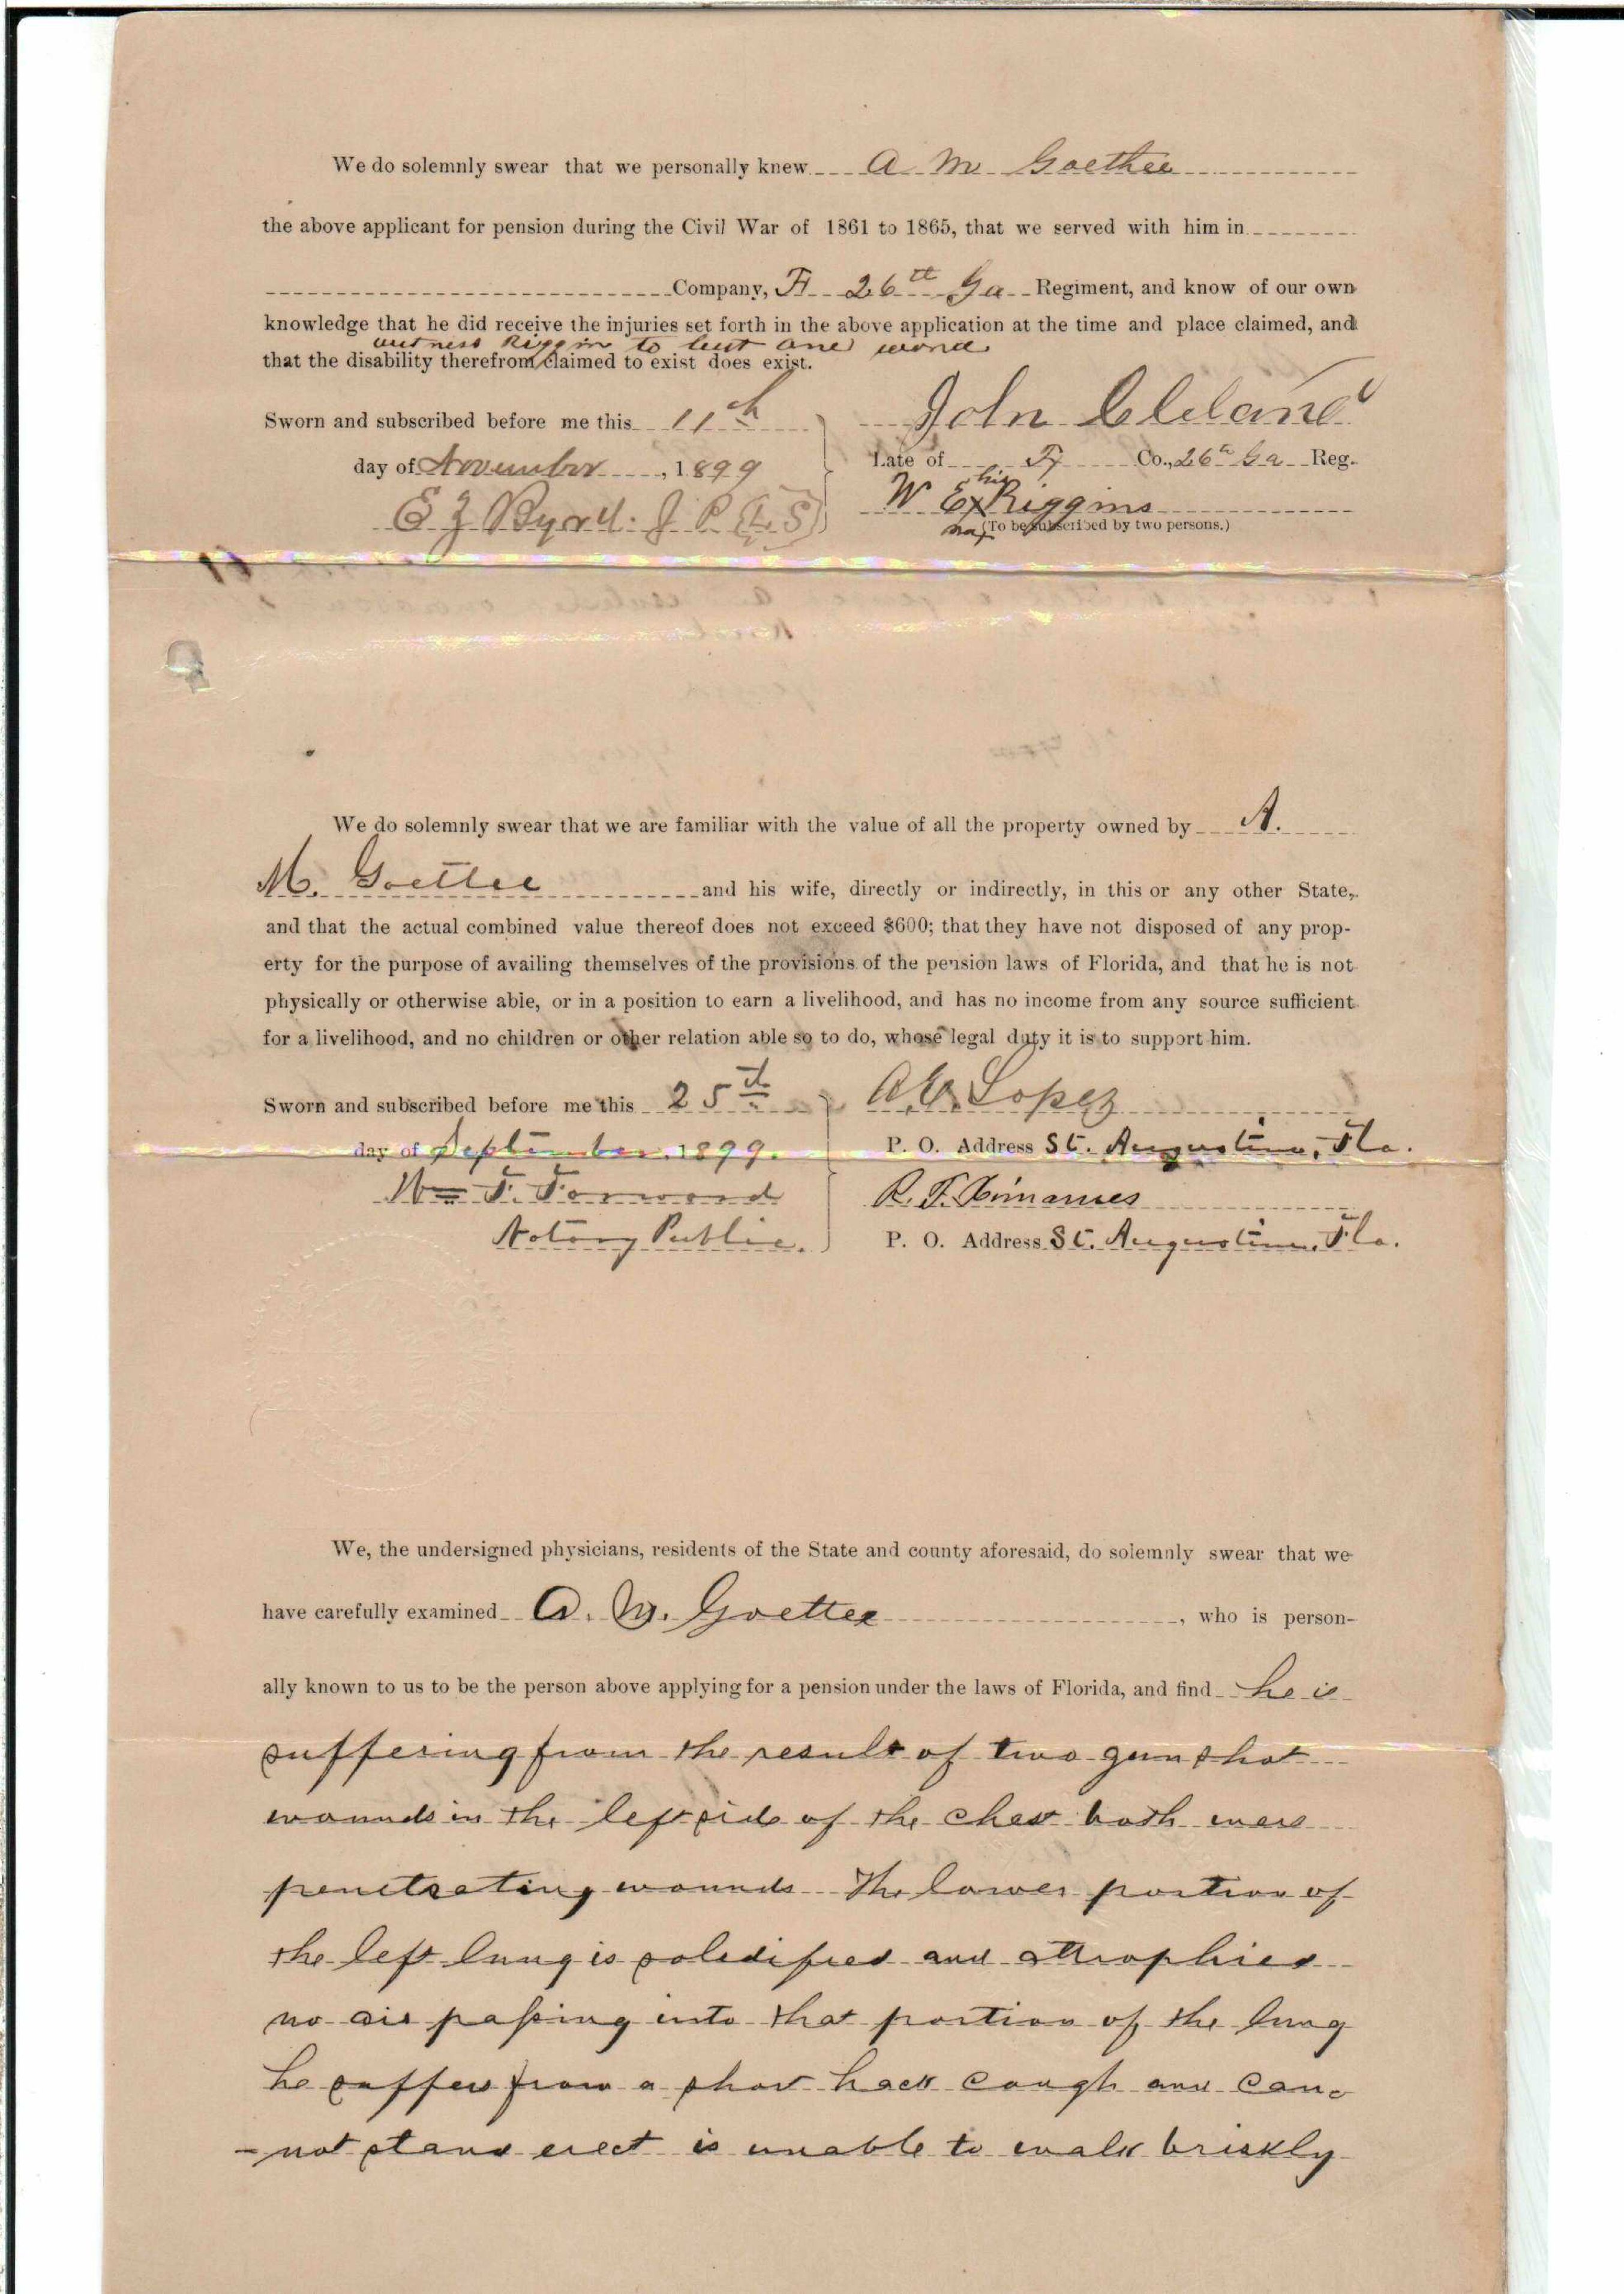 We do solemnly swear that we personally knew A M Goethee
the above applicant for pension during the Civil War of 1861 to 1865, that we served with him in
Company, F 26th Ga Regiment, and know of our own
knowledge that he did receive the injuries set forth in the above application at the time and place claimed, and
witness Riggin to but one wond
that the disability therefrom claimed to exist does exist.
Sworn and subscribed before me this 11th
John Cleland
day of November, 1899
Late of F Co., 26th Ga Reg.
his
E Z Byrd. J P (L S)
W E x Riggins
mark (To be subscribed by two persons.)
We do solemnly swear that we are familiar with the value of all the property owned by A.
M. Goethee and his wife, directly or indirectly, in this or any other State,
and that the actual combined value thereof does not exceed $600; that they have not disposed of any prop-
erty for the purpose of availing themselves of the provisions of the pension laws of Florida, and that he is not
physically or otherwise able, or in a position to earn a livelihood, and has no income from any source sufficient
for a livelihood, and no children or other relation able so to do, whose legal duty it is to support him.
Sworn and subscribed before me this 25th
Lopez
day of September, 1899.
P. O. Address St. Augustine, Fla.
Wm F. Forward
R. F. Ximanies
Notary Public.
P. O. Address St. Augustine, Fla.
We, the undersigned physicians, residents of the State and county aforesaid, do solemnly swear that we
have carefully examined A. M. Goettee, who is person-
ally known to us to be the person above applying for a pension under the laws of Florida, and find he is
suffering from the result of two gun shot
wounds in the left side of the chest both were
penetrating wounds The lower portion of
the left lung is soledified and attrophied
no air passing into that portion of the lung
he suffers from a short hack cough and can-
-not stand erect is unable to walk briskly